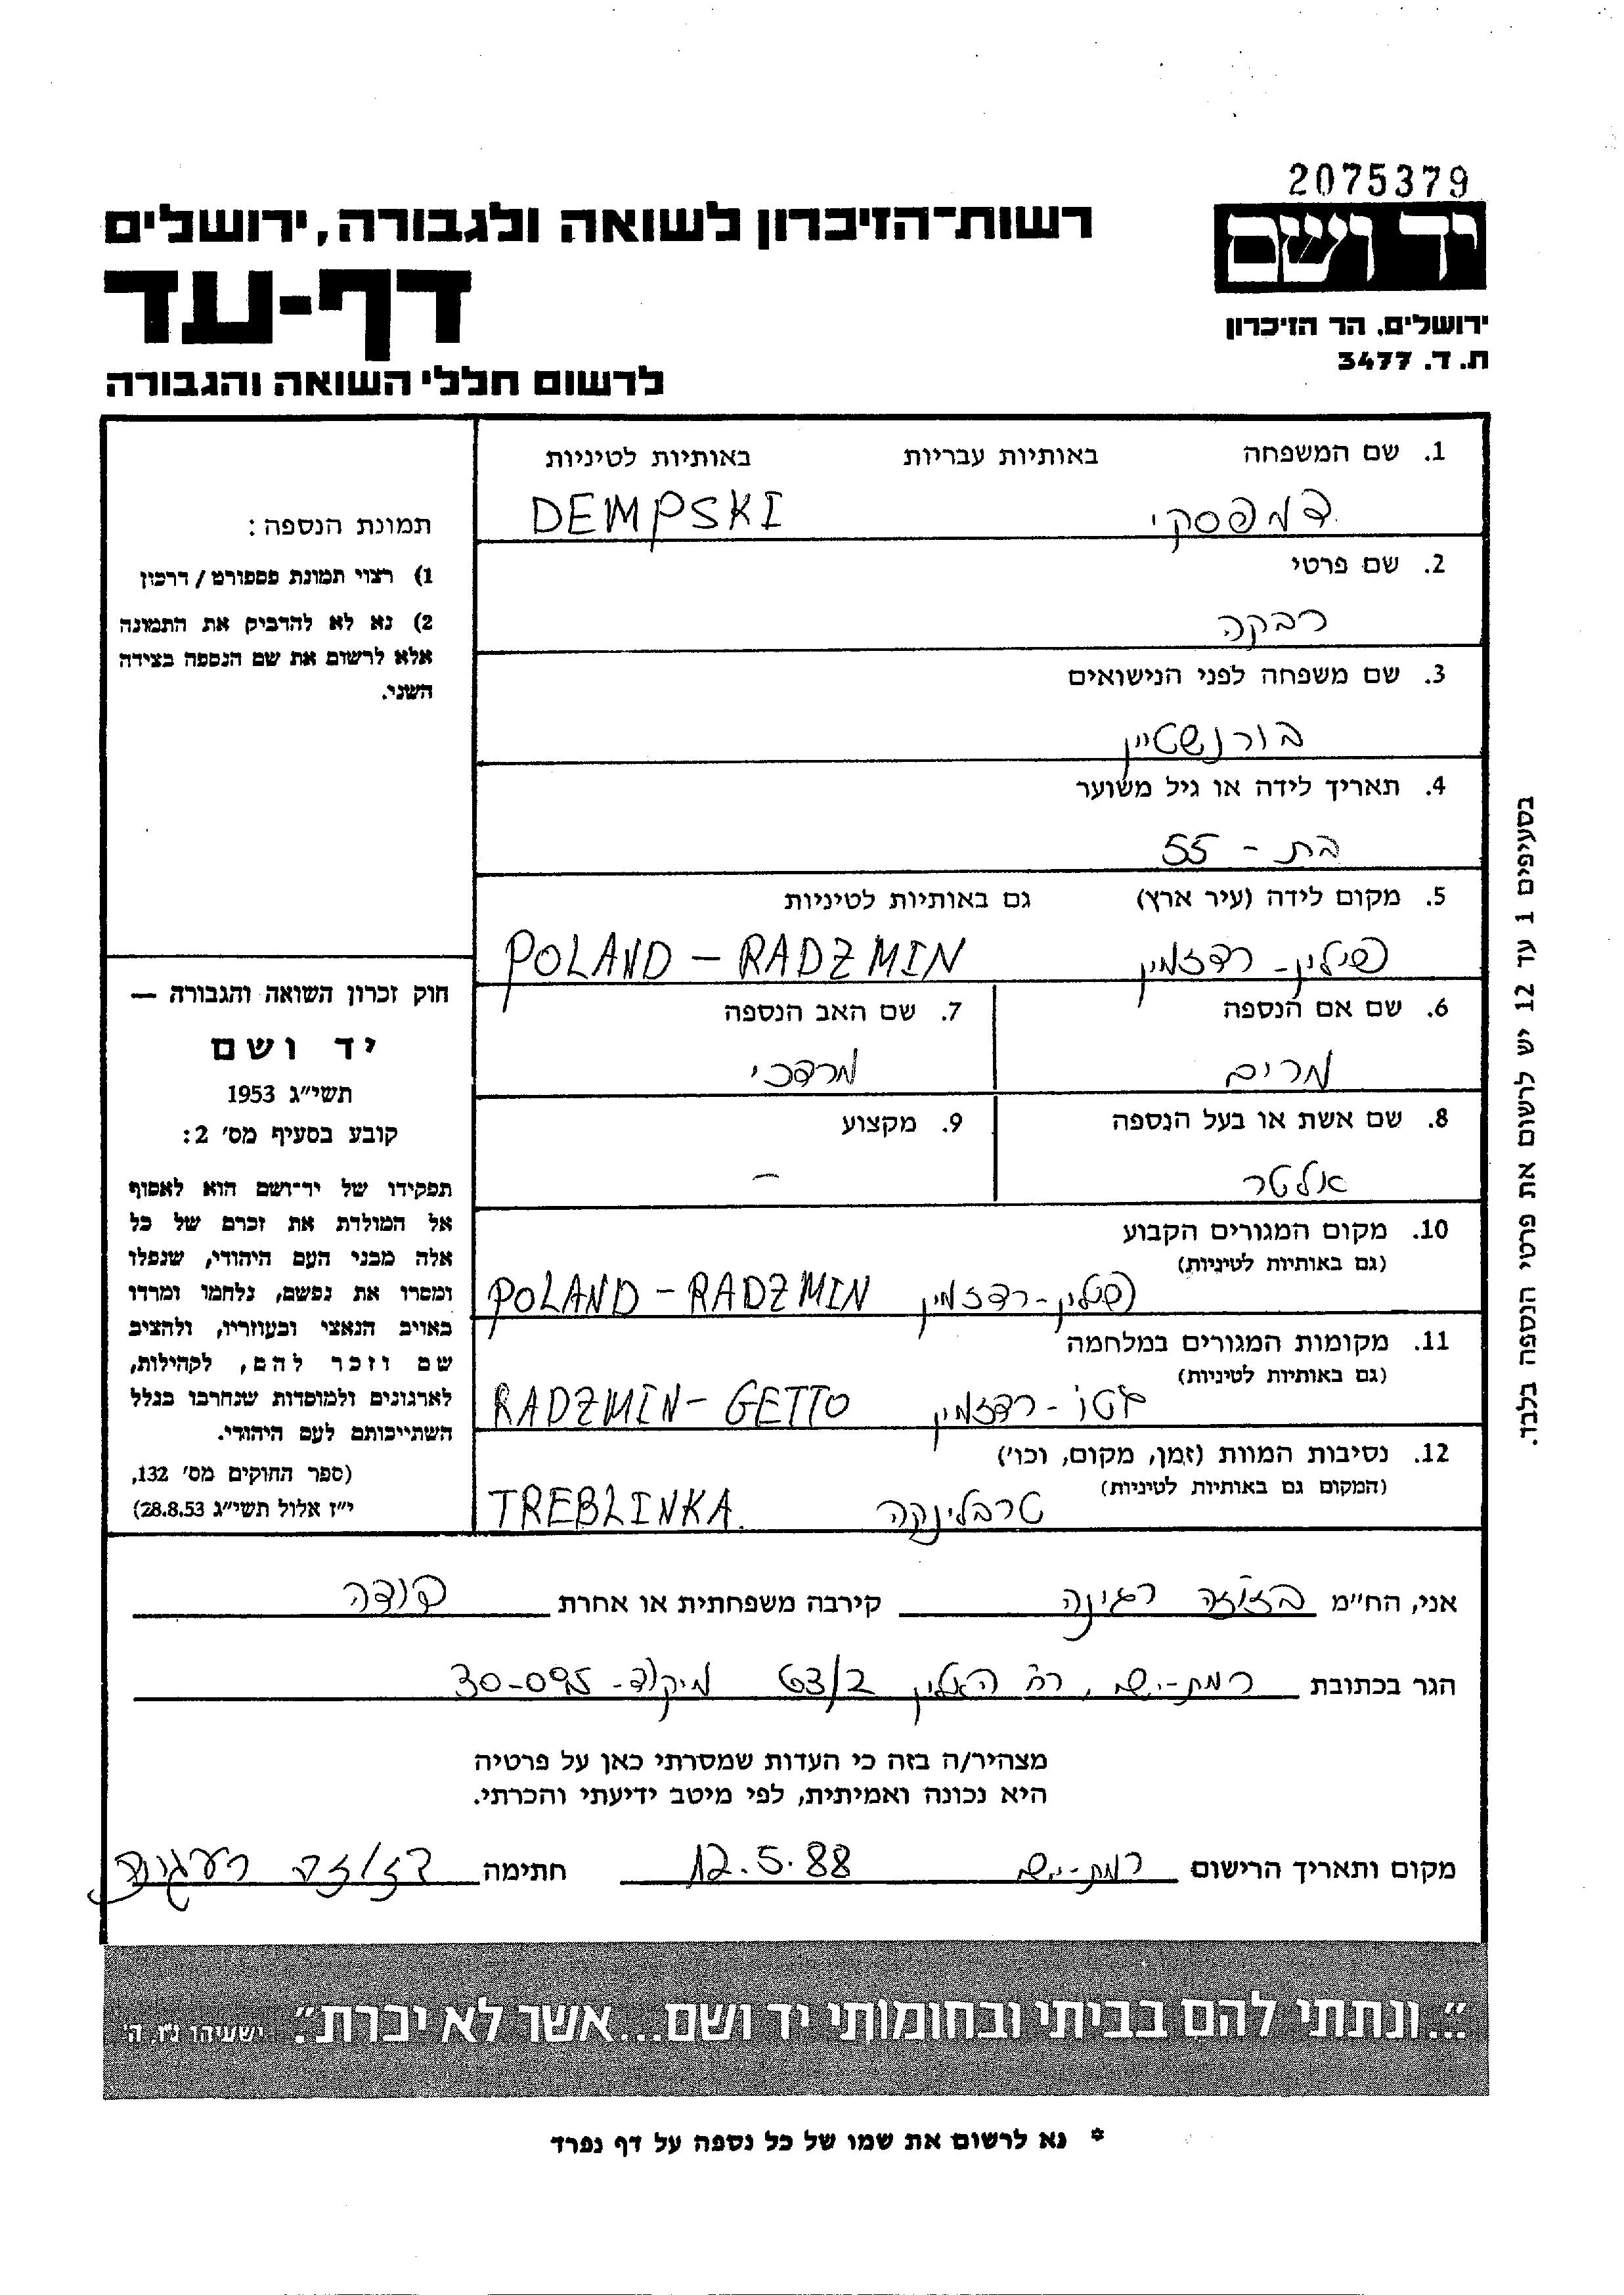 2075379
יד ושם
ירושלים, הר הזיכרון
ת. ד. 3477
רשות-הזיכרון לשואה ולגבורה, ירושלים
דף-עד
לרשום חללי השואה והגבורה
1. שם המשפחה באותיות עבריות באותיות לטיניות
דמפסקי DEMPSKI
2. שם פרטי
רבקה
3. שם משפחה לפני הנישואים
בורנשטיין
4. תאריך לידה או גיל משוער
בת - 55
5. מקום לידה (עיר ארץ) גם באותיות לטיניות
פולין - רדזמין POLAND - RADZMIN
6. שם אם הנספה 7. שם האב הנספה
מרים מרדכי
8. שם אשת או בעל הנספה 9. מקצוע
אלטר -
10. מקום המגורים הקבוע
(גם באותיות לטיניות)
פולין - רדזמין POLAND - RADZMIN
11. מקומות המגורים במלחמה
(גם באותיות לטיניות)
גטו - רדזמין RADZMIN - GETTO
12. נסיבות המוות (זמן, מקום, וכו')
(המקום גם באותיות לטיניות)
טרבלינקה TREBLINKA.
תמונת הנספה:
1) רצוי תמונת פספורט / דרכון
2) נא לא להדביק את התמונה
אלא לרשום את שם הנספה בצידה
השני.
חוק זכרון השואה והגבורה —
יד ושם
תשי"ג 1953
קובע בסעיף מס' 2:
תפקידו של יד-ושם הוא לאסוף
אל המולדת את זכרם של כל
אלה מבני העם היהודי, שנפלו
ומסרו את נפשם, נלחמו ומרדו
באויב הנאצי ובעוזריו, ולהציב
שם וזכר להם, לקהילות,
לארגונים ולמוסדות שנחרבו בגלל
השתייכותם לעם היהודי.
(ספר החוקים מס' 132,
י"ז אלול תשי"ג 28.8.53)
בסעיפים 1 עד 12 יש לרשום את פרטי הנספה בלבד.
אני, הח"מ רגינה קירבה משפחתית או אחרת דודה
הגר בכתובת רמת-ישי, רח' 30-095
מצהיר/ה בזה כי העדות שמסרתי כאן על פרטיה
היא נכונה ואמיתית, לפי מיטב ידיעתי והכרתי.
מקום ותאריך הרישום רמת-ישי 12.5.88 חתימה
"...ונתתי להם בביתי ובחומותי יד ושם...אשר לא יכרת". ישעיהו נ"ו, ה'
* נא לרשום את שמו של כל נספה על דף נפרד